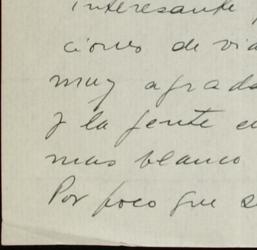 interesante
ciones de via
muy agrada
y la gente e
mas blanco
Por poco que s